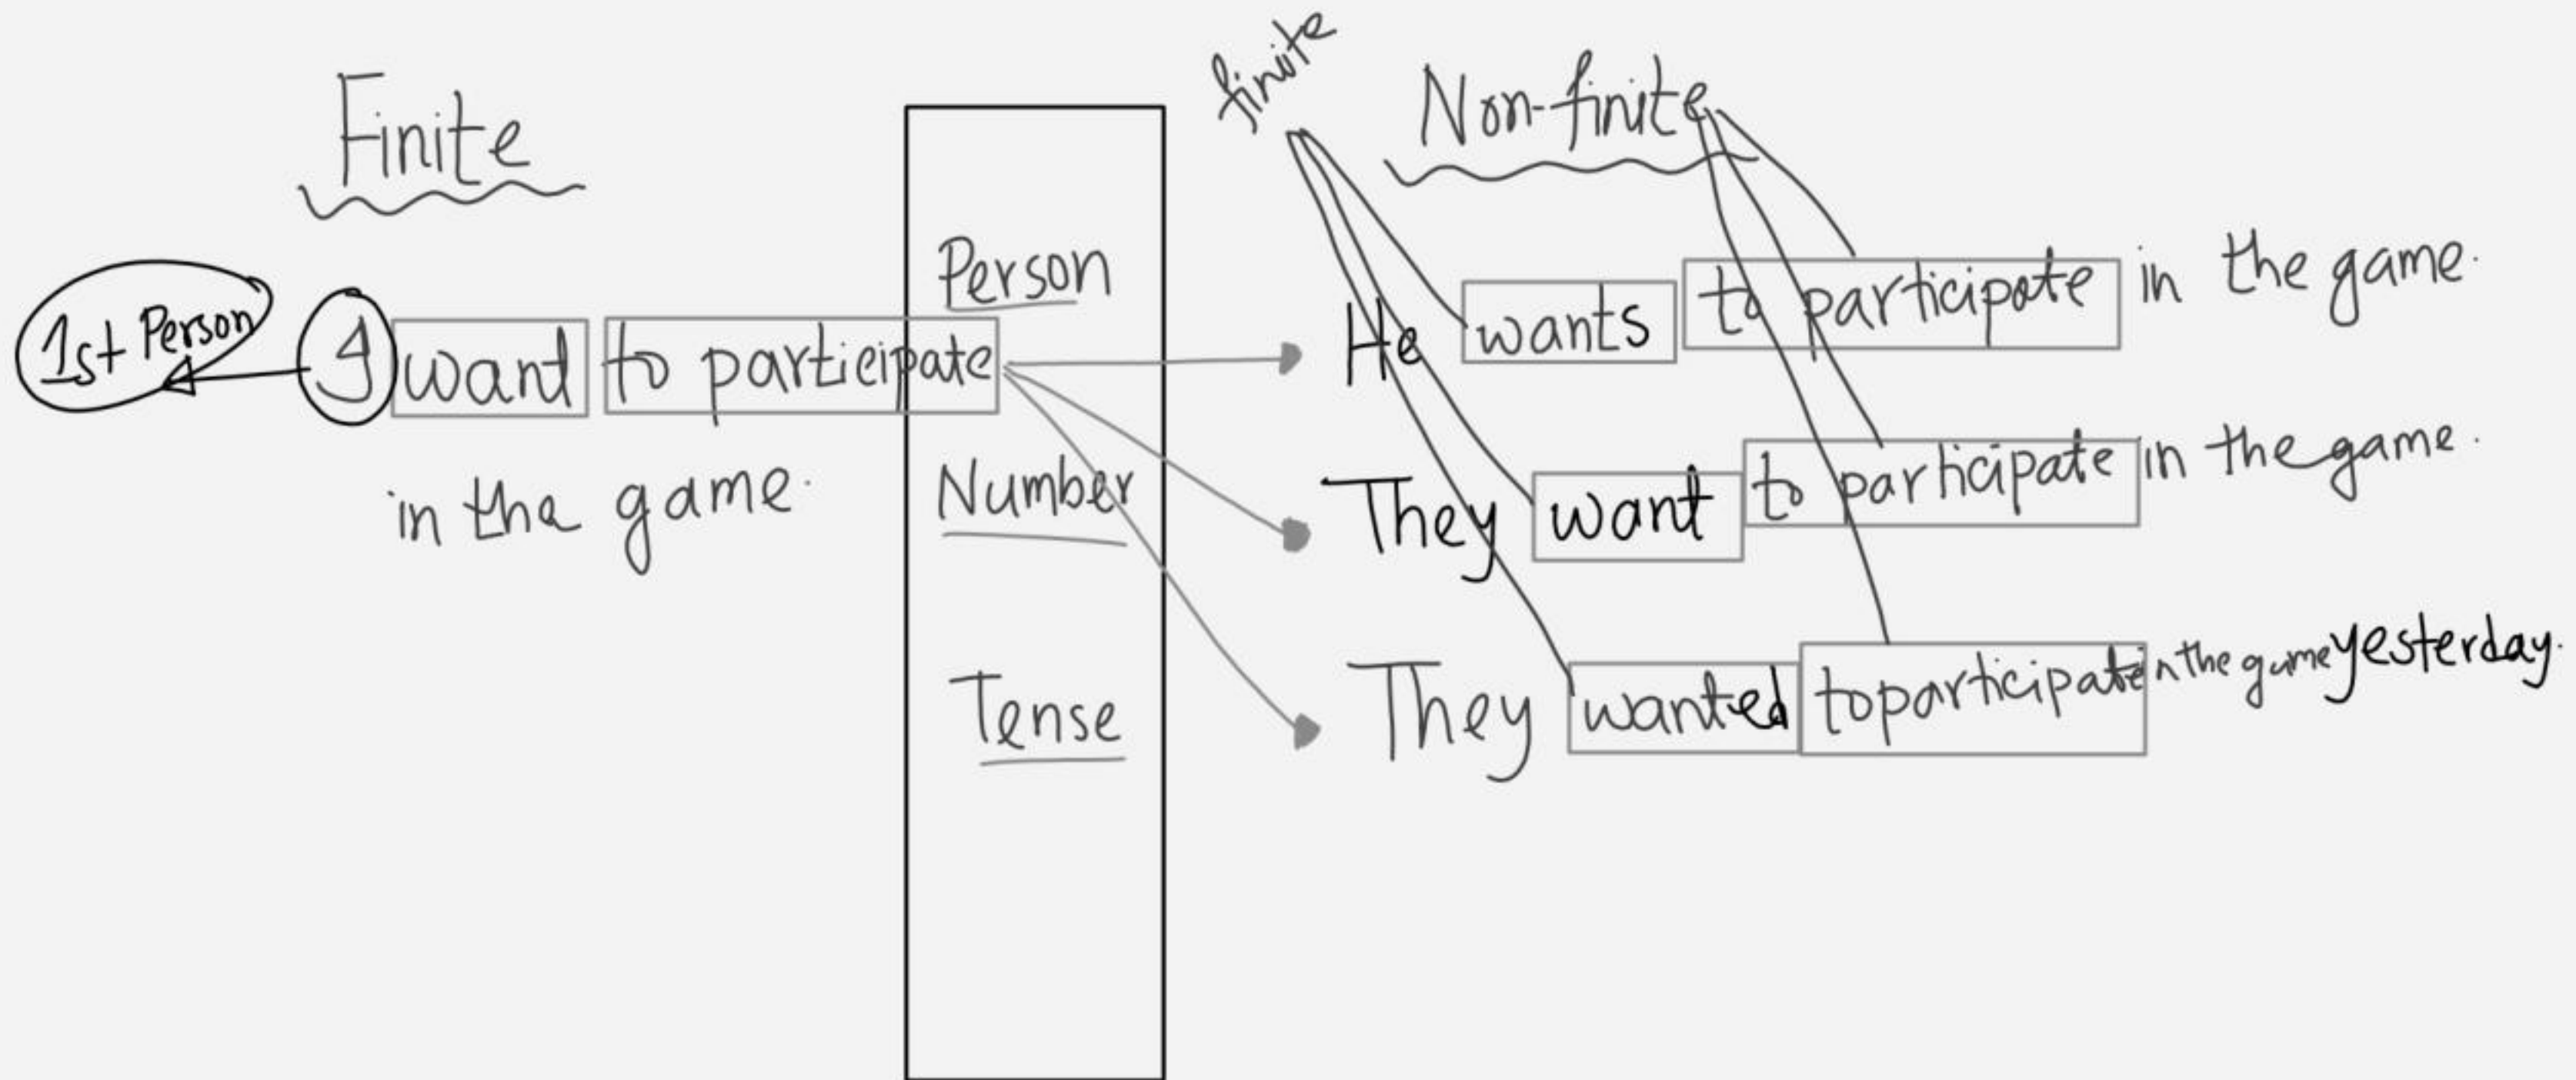 Finite
1st Person
I want to participate
in the game.
Person
Number
Tense
finite
Non-finite
He wants to participate in the game.
They want to participate in the game.
They wanted to participate in the game yesterday.